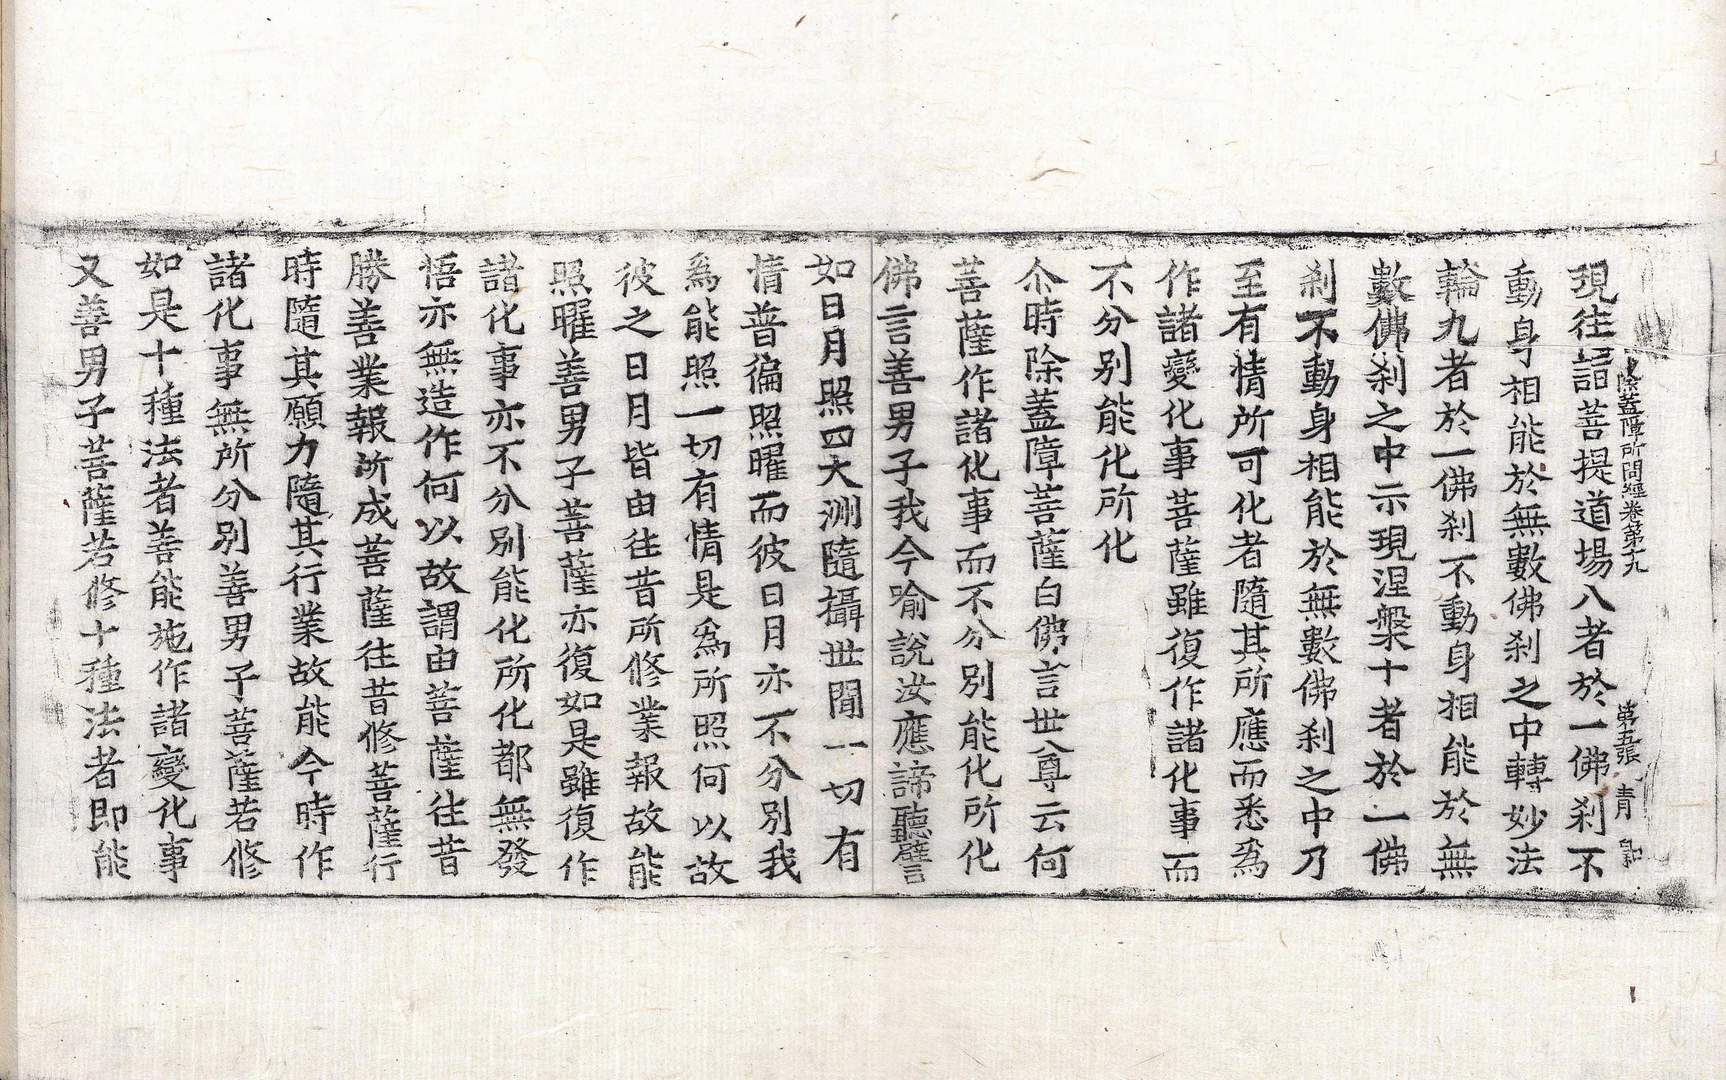 除蓋障所問經卷第十九 第五張 青
現往詣菩提道場八者於一佛刹不
動身相能於無數佛刹之中轉妙法
輪九者於一佛刹不動身相能於無
數佛刹之中示現涅槃十者於一佛
刹不動身相能於無數佛刹之中乃
至有情所可化者隨其所應而悉爲
作諸變化事菩薩雖復作諸化事而
不分別能化所化
尒時除蓋障菩薩白佛言世尊云何
菩薩作諸化事而不分別能化所化
佛言善男子我今喻說汝應諦聽譬言
如日月照四大洲隨攝世間一切有
情普徧照曜而彼日月亦不分別我
爲能照一切有情是爲所照何以故
彼之日月皆由往昔所修業報故能
照曜善男子菩薩亦復如是雖復作
諸化事亦不分別能化所化都無發
悟亦無造作何以故謂由菩薩往昔
勝善業報所成菩薩往昔修菩薩行
時隨其願力隨其行業故能今時作
諸化事無所分別善男子菩薩若修
如是十種法者善能施作諸變化事
又善男子菩薩若修十種法者即能